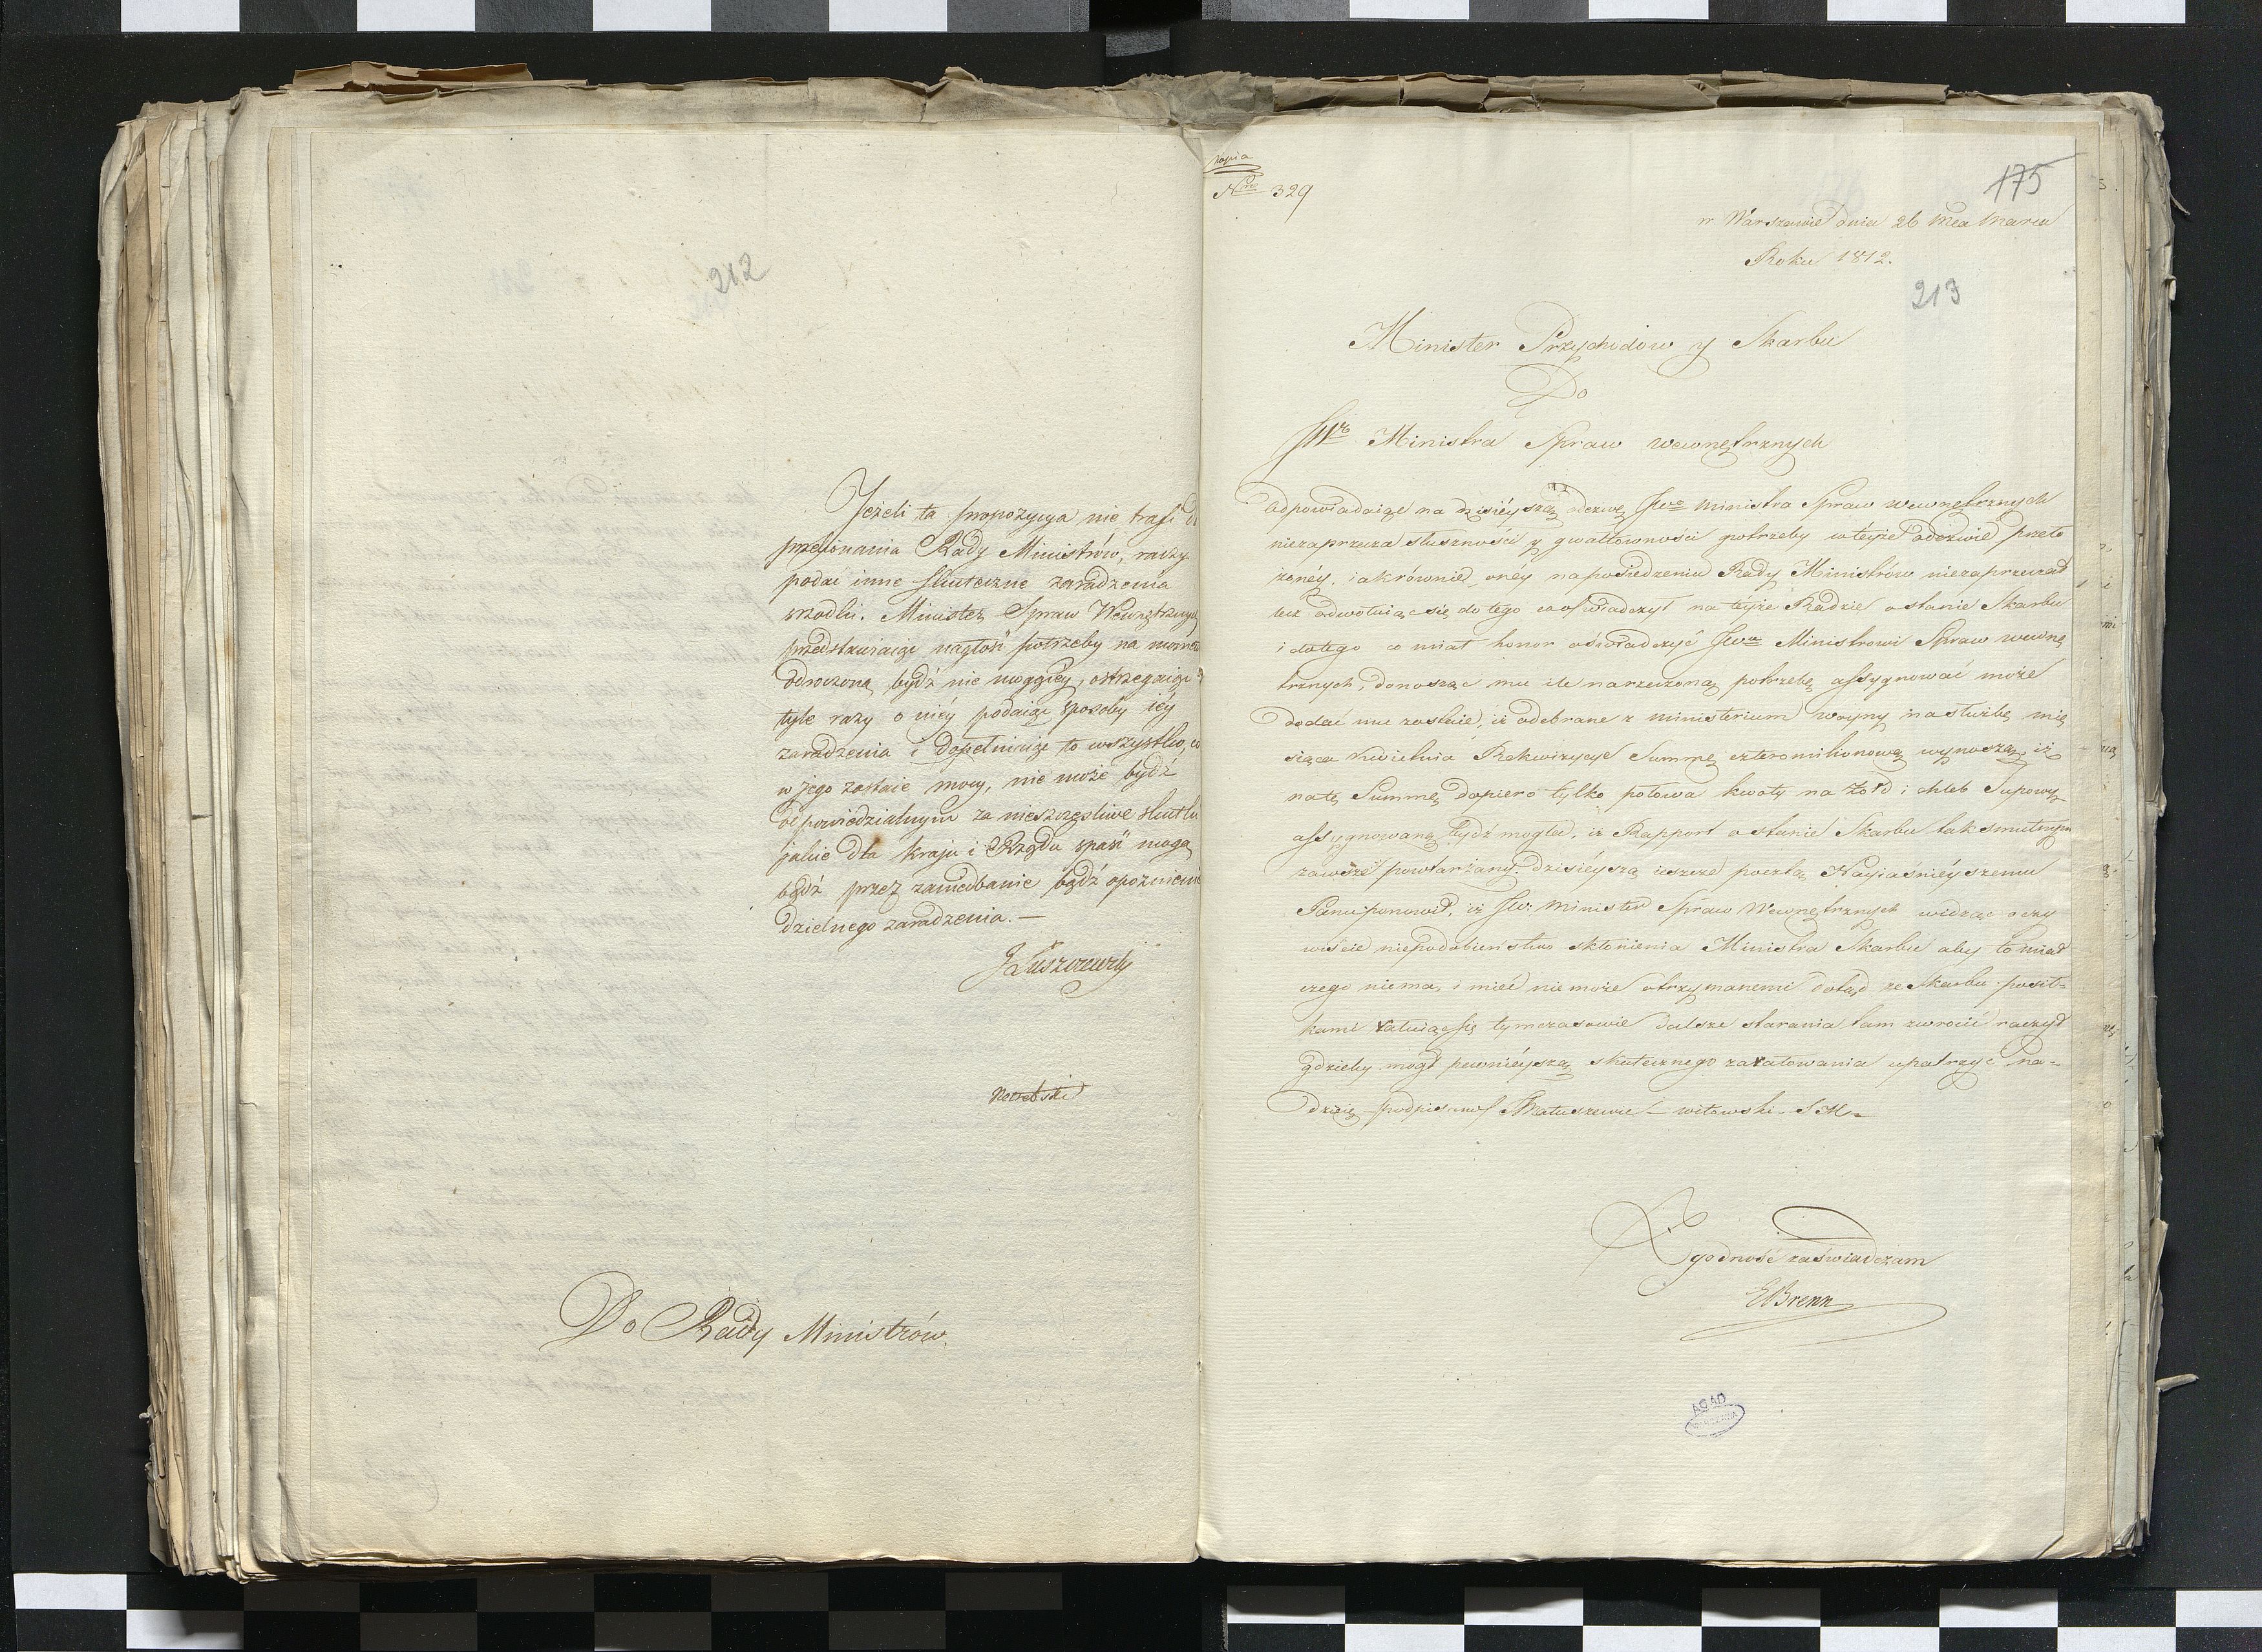 212
Jeżeli ta propozycya nie trafi do
przekonania Rady Ministrów, raczy
podać inne skuteczne zaradzenia
szodki. Minister Spraw Wewnętrznych
przedstawiaiąc nagłość potrzeby na moment
odroczoną bydź nie mogącey, ostrzegaiąc
tyle razy o niéy podaiąc sposoby iéy
zaradzenia i dopełniaiąc to wszystko, co
w jego zostaie mocy, nie może bydź
odpowiedzialnym za nieszczęśliwe skutki
jakie dla kraju i Rządu spaść mogą
bądź przez zaniedbanie bądź opoźnienie
dzielnego zaradzenia. —
JŁuszczewski
Do Rady Ministrów.
Kopia
Nro 329
175
w Warszawie dnia 26 Mca Marca
Roku 1812.
213
Minister Przychodow y Skarbu
Do
JWo Ministra Spraw wewnętrznych
Odpowiadaiąc na dzisiéyszą odezwę JWo Ministra Spraw wewnętrznych
niezaprzecza słuszności y gwałtowności potrzeby w teyże odezwie przeło
żonéy, iak równie onéy na posiedzeniu Rady Ministrów niezaprzeczał
lecz odwołuiąc się do tego co oświadczył na téyże Radzie o stanie Skarbu
i do tego co miał honor oświadczyć JWu Ministrowi Spraw wewnę
trznych, donosząc mu ile na rzeczoną potrzebę assygnować może
dodać mu zostaie, iż odebrane z ministerium woyny na służbę mie
siąca Kwietnia Rekwizycye Summę czteromilionową wynoszą, iż
na tę Summę dopiero tylko połowa kwoty na Żołd i chleb Supowy
assygnowaną bydź mogła, iż Rapport o stanie Skarbu tak smutnym
zawsze powtarzany dzisiéyszą ieszcze pocztą Nayiaśniéyszemu
Panu ponowił, iż JW. Minister Spraw Wewnętrznych widząc oczy
wiscie niepodobieństwo skłonienia Ministra Skarbu aby to miał
czego niema, i mieć niemoże otrzymanemi dotąd ze Skarbu posił-
kami ratuiąc się tymczasowie dalsze starania tam zwrocić raczył
gdzieby mogł pewniéyszą skutecznego zaratowania upatrzyć na-
dzieię podpisano Matuszewic — witowski - S M
Zgodność zaświadczam
EBrenn
AGAD
WARSZAWA